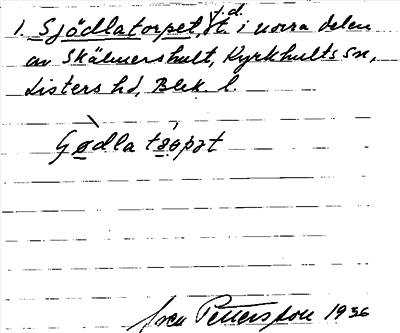 1. Sjödlatorpet, jd. t. i norra delen
av Skälmershult, Kyrkhults sn,
Listers hd, Blek. l.
Gödla tsopat
Pettersson 1936